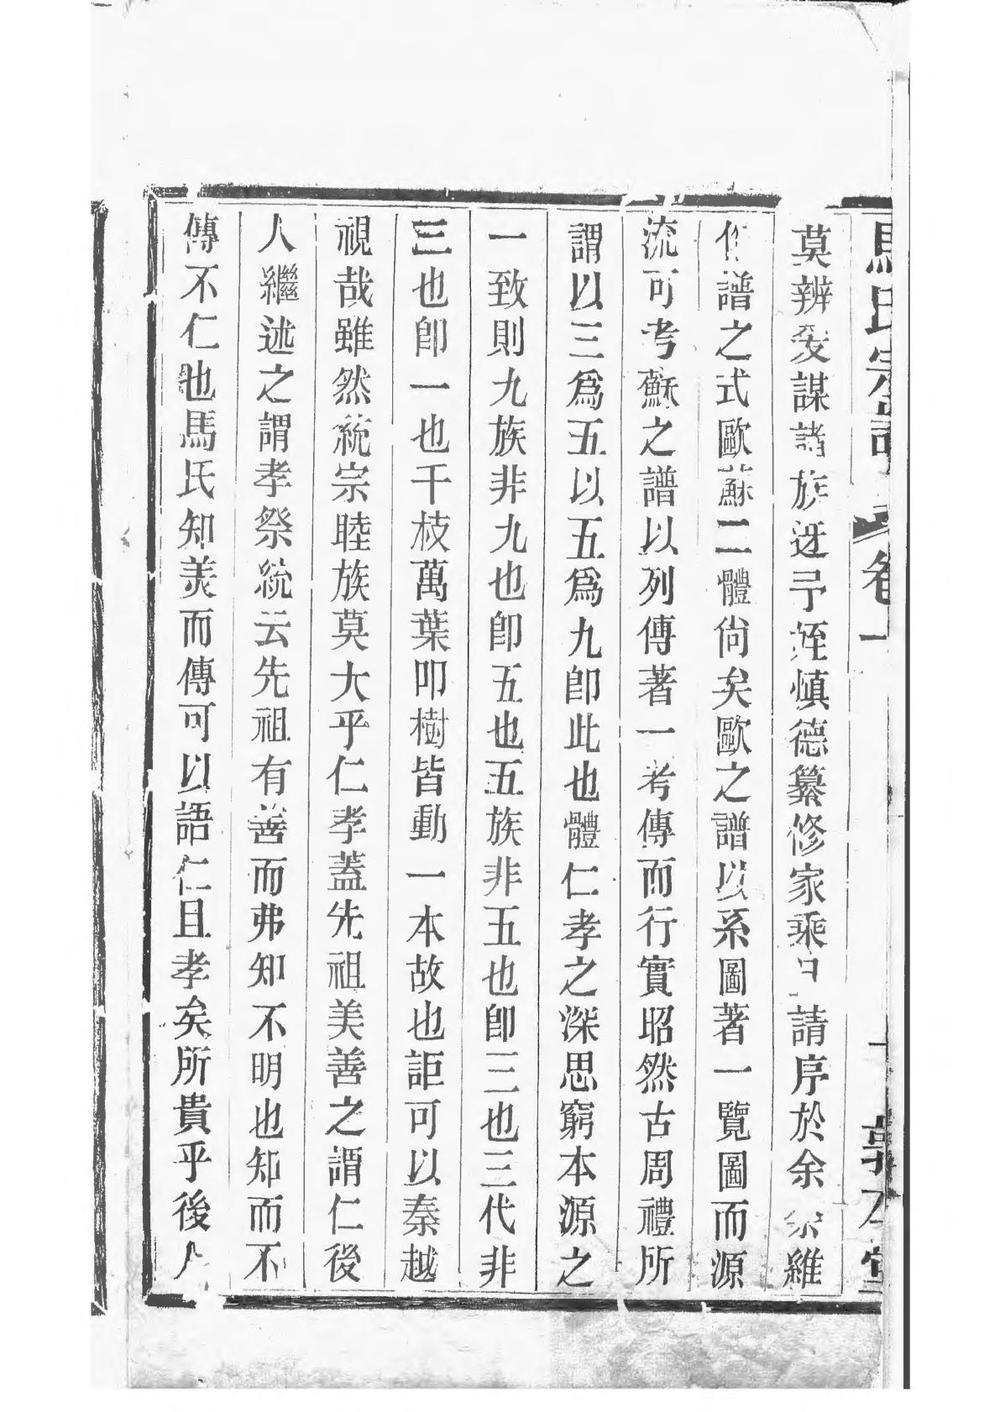 馬氏宗譜 卷一 敦本堂
莫辨爰謀諸族迓予姪慎德纂修家乘請序於余余維
作譜之式歐蘇二體尙矣歐之譜以系圖著一覽圖而源
流可考蘇之譜以列傳著一考傳而行實昭然古周禮所
謂以三爲五以五爲九卽此也體仁孝之深思窮本源之
一致則九族非九也卽五也五族非五也卽三也三代非
三也卽一也千枝萬葉叩樹皆動一本故也詎可以秦越
視哉雖然統宗睦族莫大乎仁孝蓋先祖美善之謂仁後
人繼述之謂孝祭統云先祖有善而弗知不明也知而不
傳不仁也馬氏知美而傳可以語仁且孝矣所貴乎後人